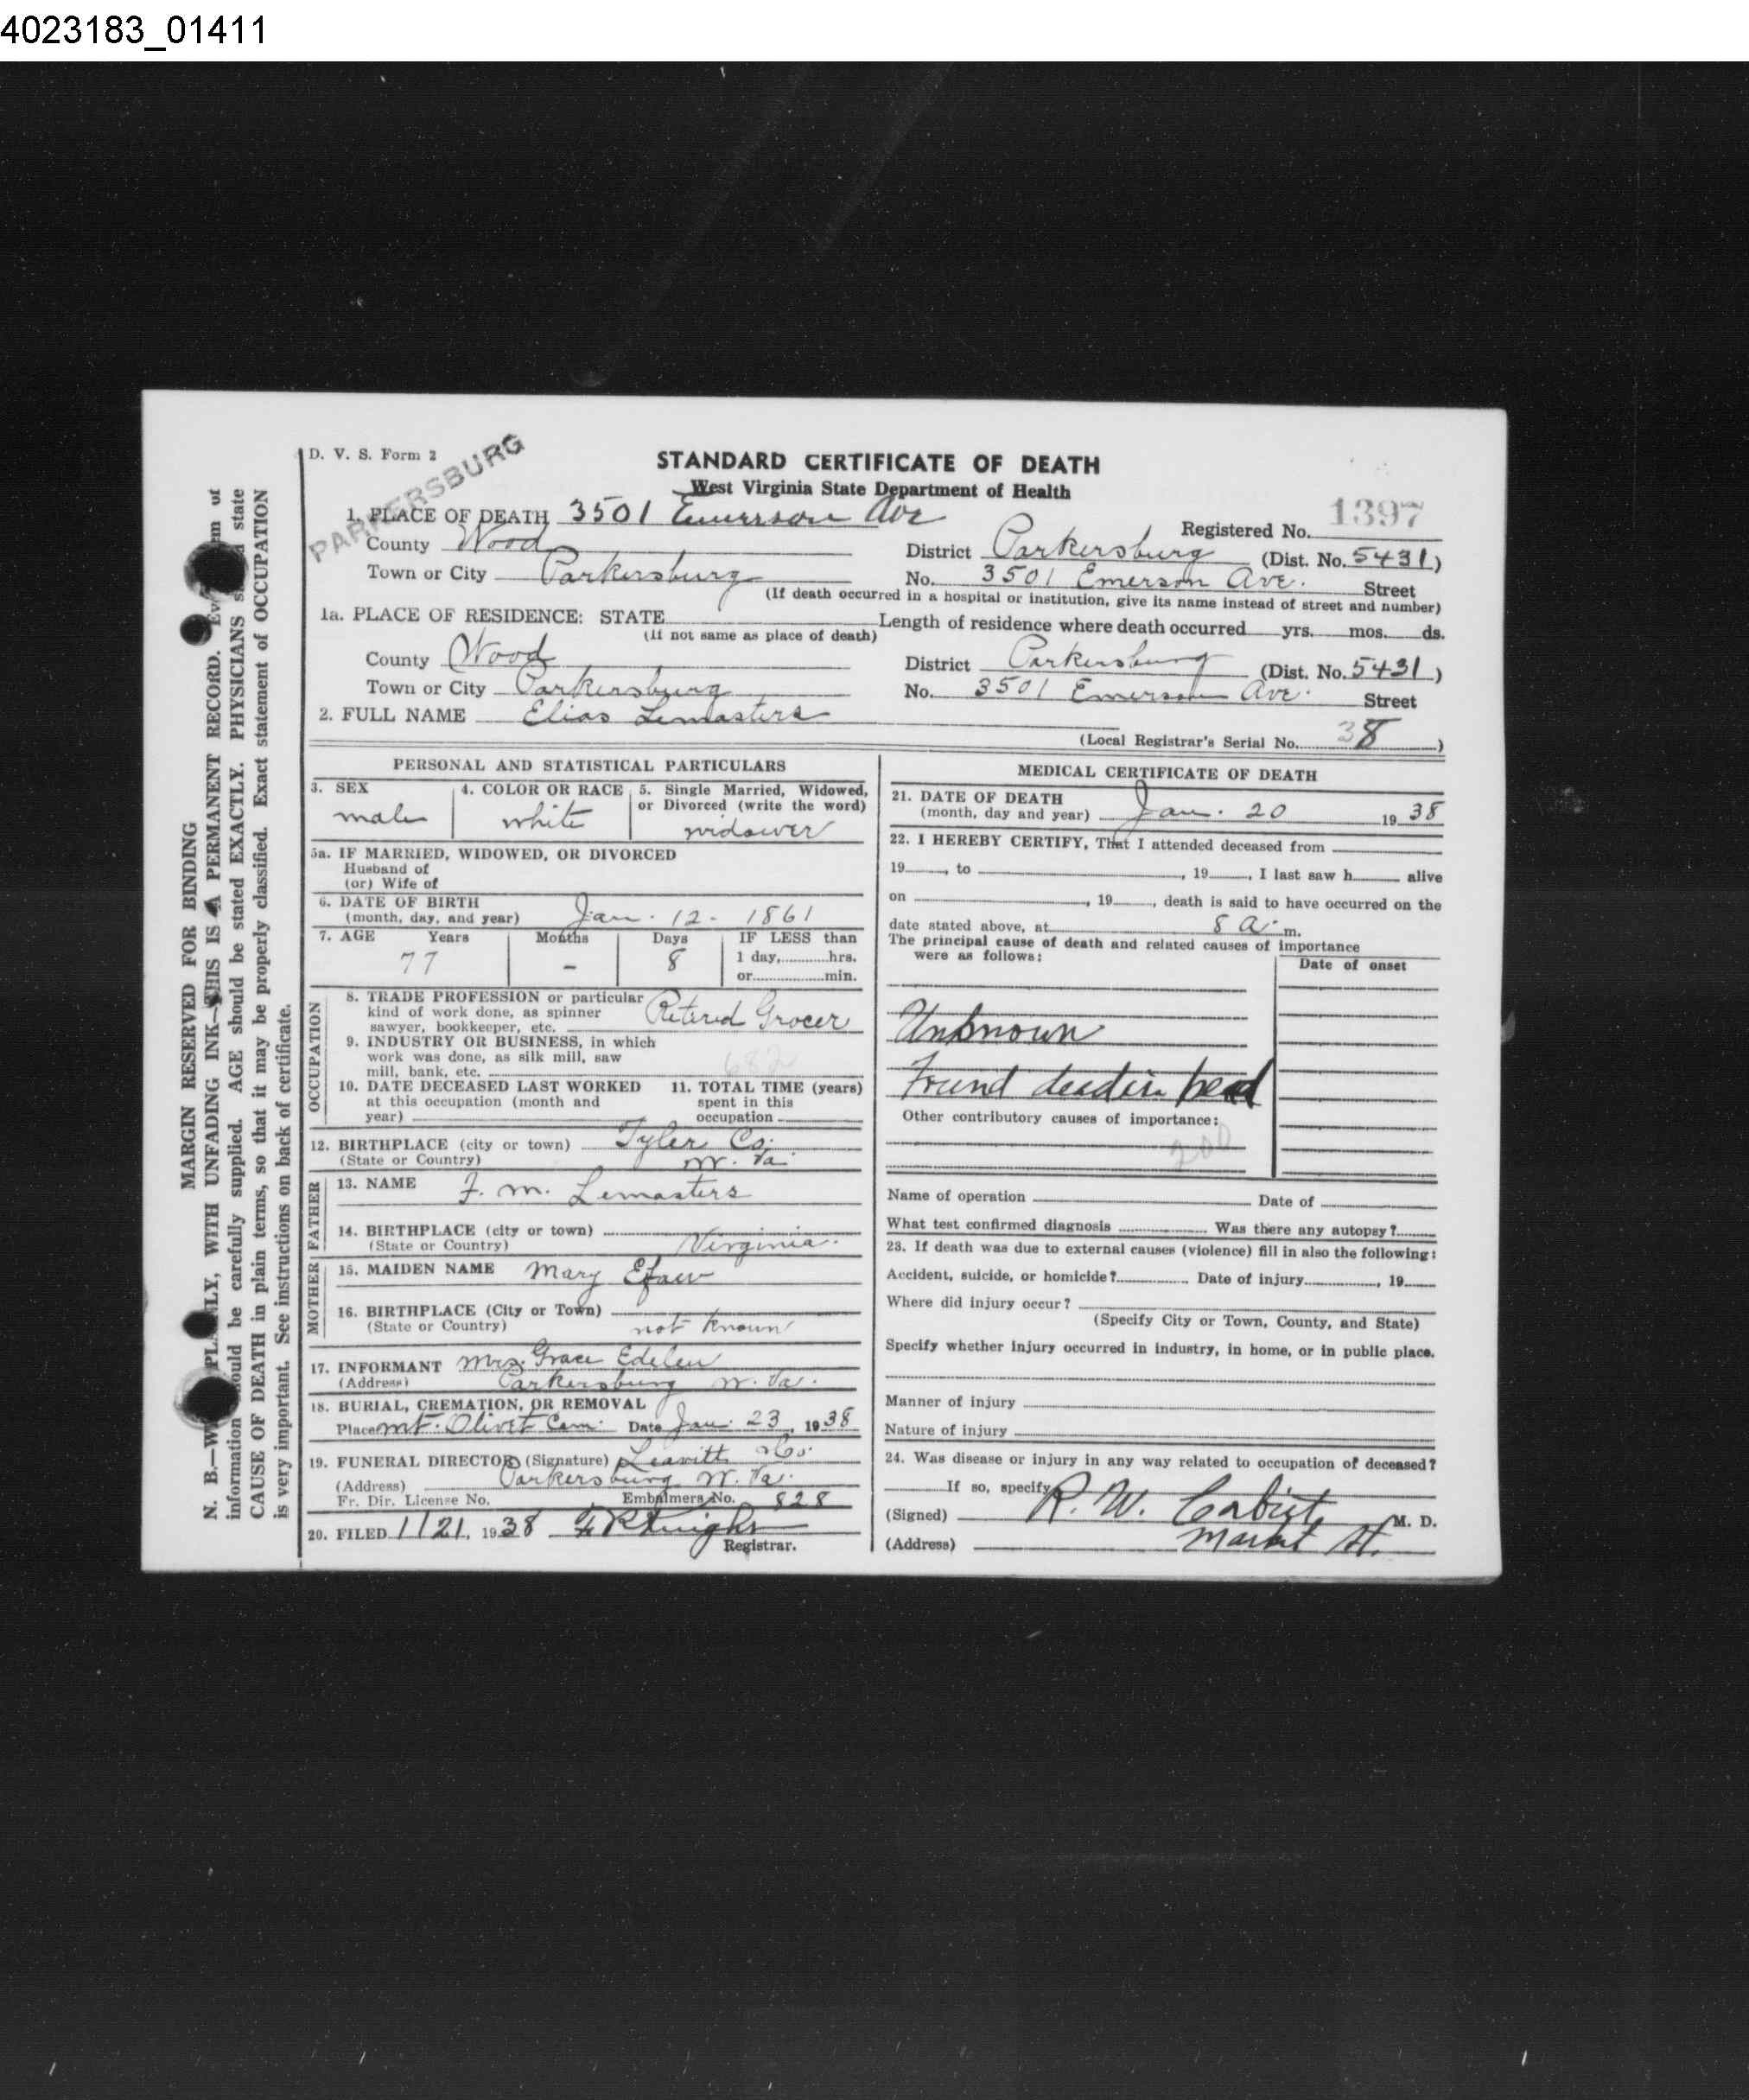 4023183_01411
D. V. S. Form 2
PARKERSBURG
STANDARD CERTIFICATE OF DEATH
West Virginia State Department of Health
1. PLACE OF DEATH 3501 Emerson Ave
Registered No. 1397
County Wood
District Parkersburg (Dist. No. 5431)
Town or City Parkersburg
No. 3501 Emerson Ave. Street
(If death occurred in a hospital or institution, give its name instead of street and number)
1a. PLACE OF RESIDENCE: STATE
(If not same as place of death)
Length of residence where death occurred yrs. mos. ds.
County Wood
District Parkersburg (Dist. No. 5431)
Town or City Parkersburg
No. 3501 Emerson Ave. Street
2. FULL NAME Elias Lemasters
(Local Registrar's Serial No. 38)
PERSONAL AND STATISTICAL PARTICULARS
3. SEX male
4. COLOR OR RACE white
5. Single Married, Widowed, or Divorced (write the word) widower
5a. IF MARRIED, WIDOWED, OR DIVORCED
Husband of
(or) Wife of
6. DATE OF BIRTH
(month, day, and year) Jan. 12 - 1861
7. AGE Years Months Days IF LESS than
77 - 8 1 day, hrs.
or min.
OCCUPATION
8. TRADE PROFESSION or particular
kind of work done, as spinner
sawyer, bookkeeper, etc. Retired Grocer
9. INDUSTRY OR BUSINESS, in which
work was done, as silk mill, saw
mill, bank, etc.
682
10. DATE DECEASED LAST WORKED
at this occupation (month and
year)
11. TOTAL TIME (years)
spent in this
occupation
12. BIRTHPLACE (city or town) Tyler Co.
(State or Country) W. Va.
FATHER
13. NAME F. M. Lemasters
14. BIRTHPLACE (city or town)
(State or Country) Virginia.
MOTHER
15. MAIDEN NAME Mary Efaw
16. BIRTHPLACE (City or Town)
(State or Country) not known
17. INFORMANT Mrs. Grace Edelen
(Address) Parkersburg W. Va.
18. BURIAL, CREMATION, OR REMOVAL
Place Mt. Olivet Cem. Date Jan. 23, 1938
19. FUNERAL DIRECTOR (Signature) Leavitt & Co.
(Address) Parkersburg W. Va.
Fr. Dir. License No. Embalmers No. 828
20. FILED 1/21, 1938
Registrar.
MEDICAL CERTIFICATE OF DEATH
21. DATE OF DEATH
(month, day and year) Jan. 20 19 38
22. I HEREBY CERTIFY, That I attended deceased from
19 , to , 19 , I last saw h alive
on , 19 , death is said to have occurred on the
date stated above, at 8 a. m.
The principal cause of death and related causes of importance
were as follows:
Date of onset
Unknown
Found dead in bed
Other contributory causes of importance:
200
Name of operation Date of
What test confirmed diagnosis Was there any autopsy?
23. If death was due to external causes (violence) fill in also the following:
Accident, suicide, or homicide? Date of injury , 19
Where did injury occur?
(Specify City or Town, County, and State)
Specify whether injury occurred in industry, in home, or in public place.
Manner of injury
Nature of injury
24. Was disease or injury in any way related to occupation of deceased?
If so, specify
(Signed) R. W. M. D.
(Address) Market St.
MARGIN RESERVED FOR BINDING
N. B.—W PLAINLY, WITH UNFADING INK—THIS IS A PERMANENT RECORD. Ev em of
information should be carefully supplied. AGE should be stated EXACTLY. PHYSICIANS s state
CAUSE OF DEATH in plain terms, so that it may be properly classified. Exact statement of OCCUPATION
is very important. See instructions on back of certificate.